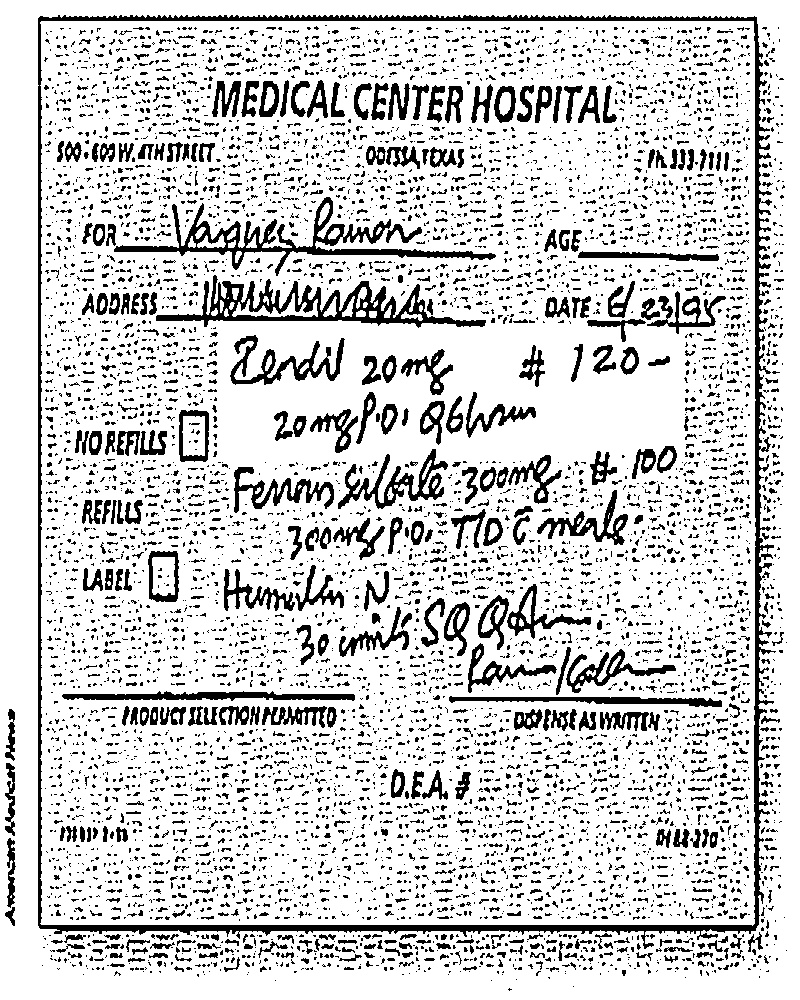 MEDICAL CENTER HOSPITAL
500-600 W. 4TH STREET ODESSA, TEXAS Ph. 333-7111
FOR Vasquez, Ramon AGE
ADDRESS DATE 6/23/95
20 mg # 120-
20 mg P.O. Q6hours
NO REFILLS
Ferrous Sulfate 300mg # 100
REFILLS
300mg P.O. TID c̄ meals.
LABEL
Humulin N
30 units SQ QAm.
PRODUCT SELECTION PERMITTED DISPENSE AS WRITTEN
D.E.A. #
American Medical News